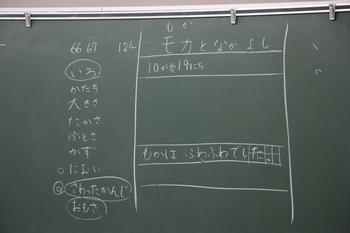 66 67 124
いろ
かたち
大きさ
たかさ
ふとさ
かず
○ におい
◎ さわったかんじ
おもさ
もか
モカとなかよし
10がつ19にち
もかは ふわふわでした。